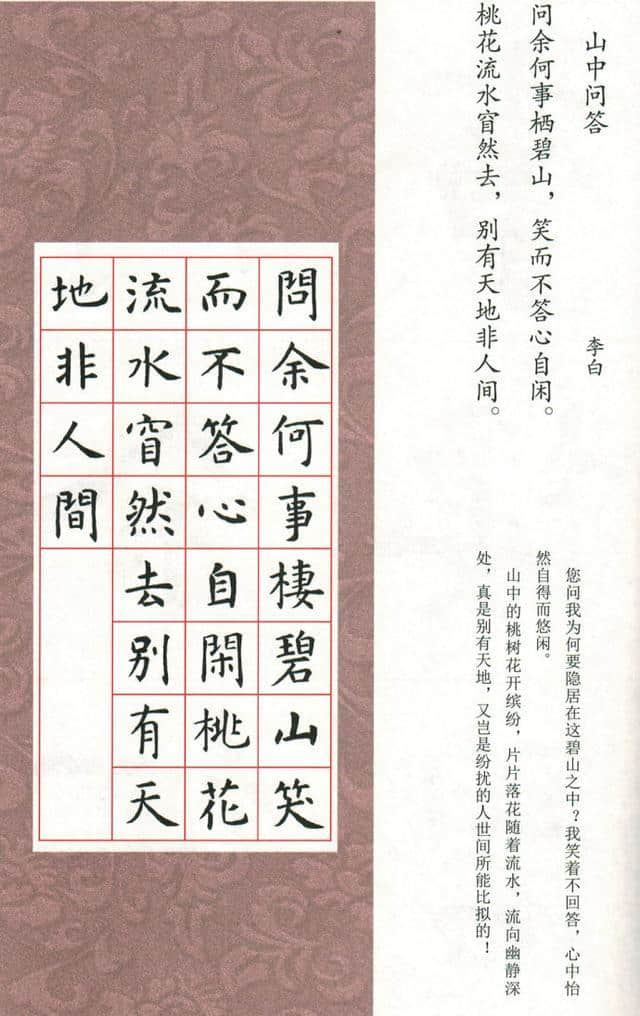 山中问答
李白
问余何事栖碧山，笑而不答心自闲。
桃花流水窅然去，别有天地非人间。
您问我为何要隐居在这碧山之中？我笑着不回答，心中怡
然自得而悠闲。
山中的桃树花开缤纷，片片落花随着流水，流向幽静深
处，真是别有天地，又岂是纷扰的人世间所能比拟的！
問余何事棲碧山笑
而不答心自閑桃花
流水窅然去别有天
地非人間